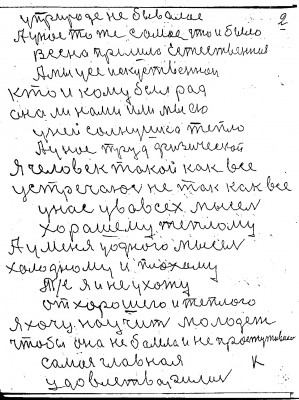 у природе не бывалае 2
А у нас то же самое что и было
Весна пришла естественная
А мы усе искуственной
кто и кому был рад
она ли нами или мы ею
у ней солнушка тепло
А у нас труд физической
Я человек такой как все
устречаюс не так как все
у нас у во всех мысел
хорашему теплому
А у меня у одного мысел
халодному и плохаму
Т/е я и не ухожу
от хорошего и теплого
я хочу научит молодеж
чтоби она не балела и не простужевалас
самая главная К
удовлетварили